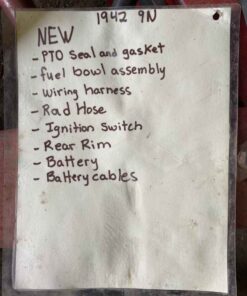 1942 9N
NEW
- PTO Seal and gasket
- fuel bowl assembly
- wiring harness
- Rad Hose
- Ignition Switch
- Rear Rim
- Battery
- Battery cables